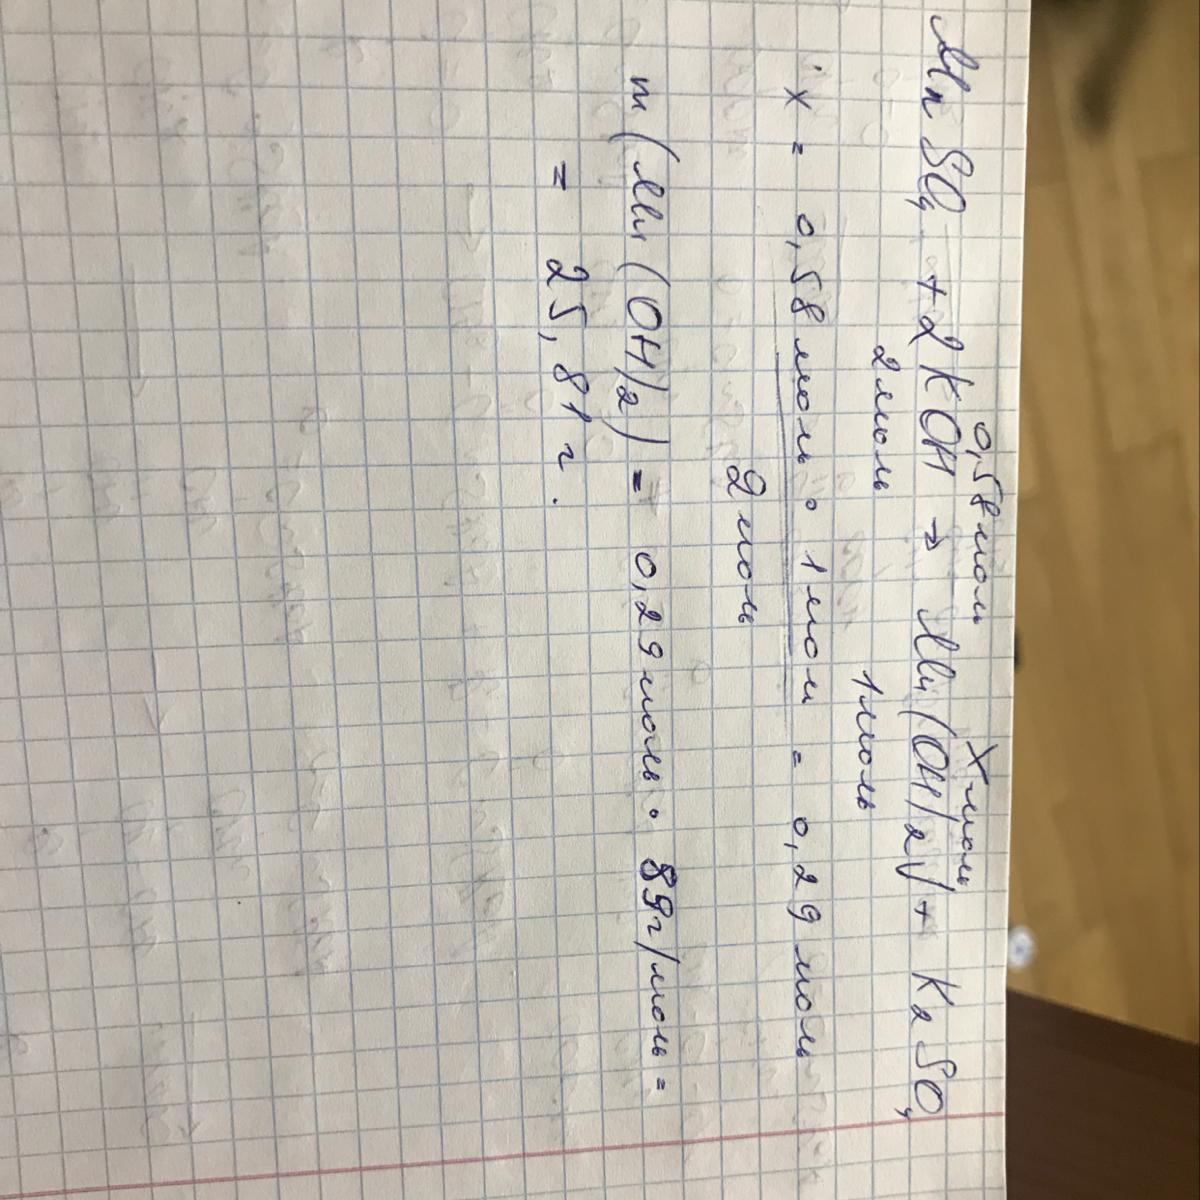 0,58 моль X моль
MnSO₄ + 2KOH → Mn(OH)₂↓ + K₂SO₄
2 моль 1 моль
X = 0,58 моль · 1 мол = 0,29 моль
2 моль
m(Mn(OH)₂) = 0,29 моль · 89 г/моль =
= 25,81 г.